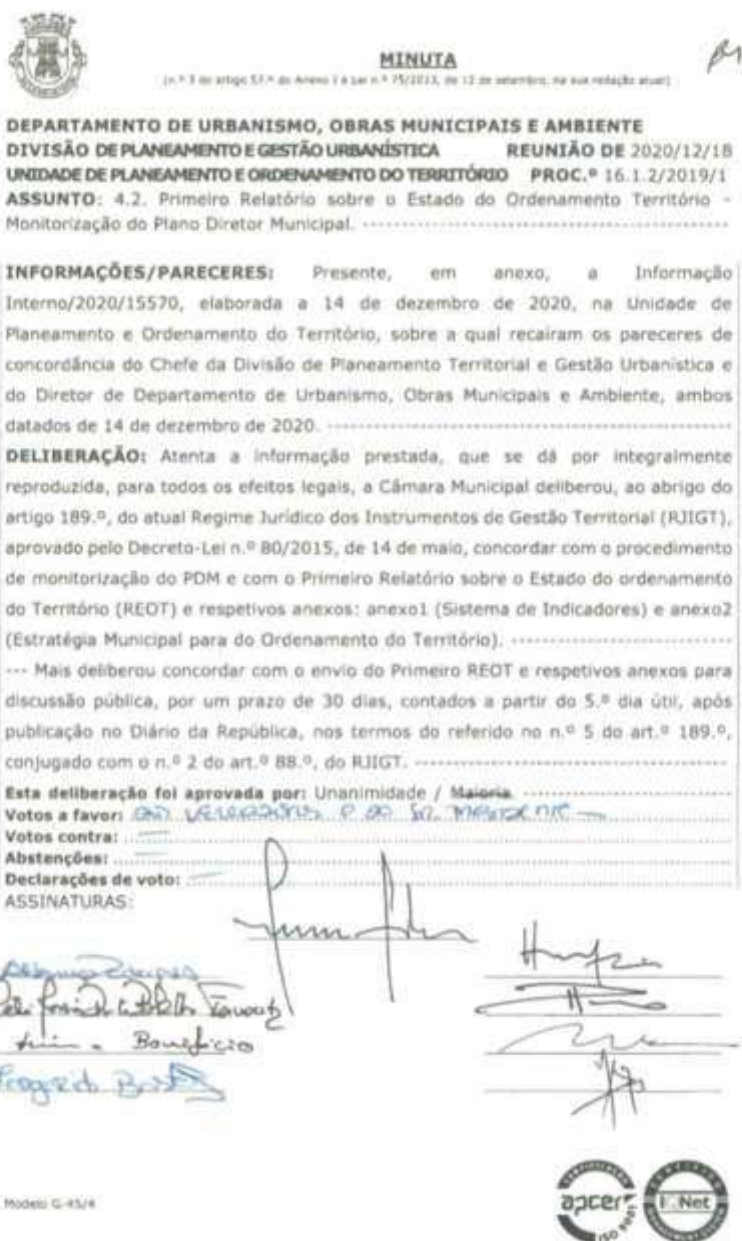 MINUTA
(n.º 3 do artigo 57.º do Anexo I à Lei n.º 75/2013, de 12 de setembro, na sua redação atual)
DEPARTAMENTO DE URBANISMO, OBRAS MUNICIPAIS E AMBIENTE
DIVISÃO DE PLANEAMENTO E GESTÃO URBANÍSTICA REUNIÃO DE 2020/12/18
UNIDADE DE PLANEAMENTO E ORDENAMENTO DO TERRITÓRIO PROC.º 16.1.2/2019/1
ASSUNTO: 4.2. Primeiro Relatório sobre o Estado do Ordenamento Território –
Monitorização do Plano Diretor Municipal. ------------------------------------------------
INFORMAÇÕES/PARECERES: Presente, em anexo, a Informação
Interno/2020/15570, elaborada a 14 de dezembro de 2020, na Unidade de
Planeamento e Ordenamento do Território, sobre a qual recairam os pareceres de
concordância do Chefe da Divisão de Planeamento Territorial e Gestão Urbanística e
do Diretor de Departamento de Urbanismo, Obras Municipais e Ambiente, ambos
datados de 14 de dezembro de 2020. ----------------------------------------------------
DELIBERAÇÃO: Atenta a informação prestada, que se dá por integralmente
reproduzida, para todos os efeitos legais, a Câmara Municipal deliberou, ao abrigo do
artigo 189.º, do atual Regime Jurídico dos Instrumentos de Gestão Territorial (RJIGT),
aprovado pelo Decreto-Lei n.º 80/2015, de 14 de maio, concordar com o procedimento
de monitorização do PDM e com o Primeiro Relatório sobre o Estado do ordenamento
do Território (REOT) e respetivos anexos: anexo1 (Sistema de Indicadores) e anexo2
(Estratégia Municipal para do Ordenamento do Território). -----------------------------
--- Mais deliberou concordar com o envio do Primeiro REOT e respetivos anexos para
discussão pública, por um prazo de 30 dias, contados a partir do 5.º dia útil, após
publicação no Diário da República, nos termos do referido no n.º 5 do art.º 189.º,
conjugado com o n.º 2 do art.º 88.º, do RJIGT. ------------------------------------------
Esta deliberação foi aprovada por: Unanimidade / Maioria. ---------------------------
Votos a favor: dos vereadores e do Sr. Presidente
Votos contra:
Abstenções:
Declarações de voto:
ASSINATURAS:
Bonifácio
Modelo G-45/4
apcer
ISO 9001
IQNet